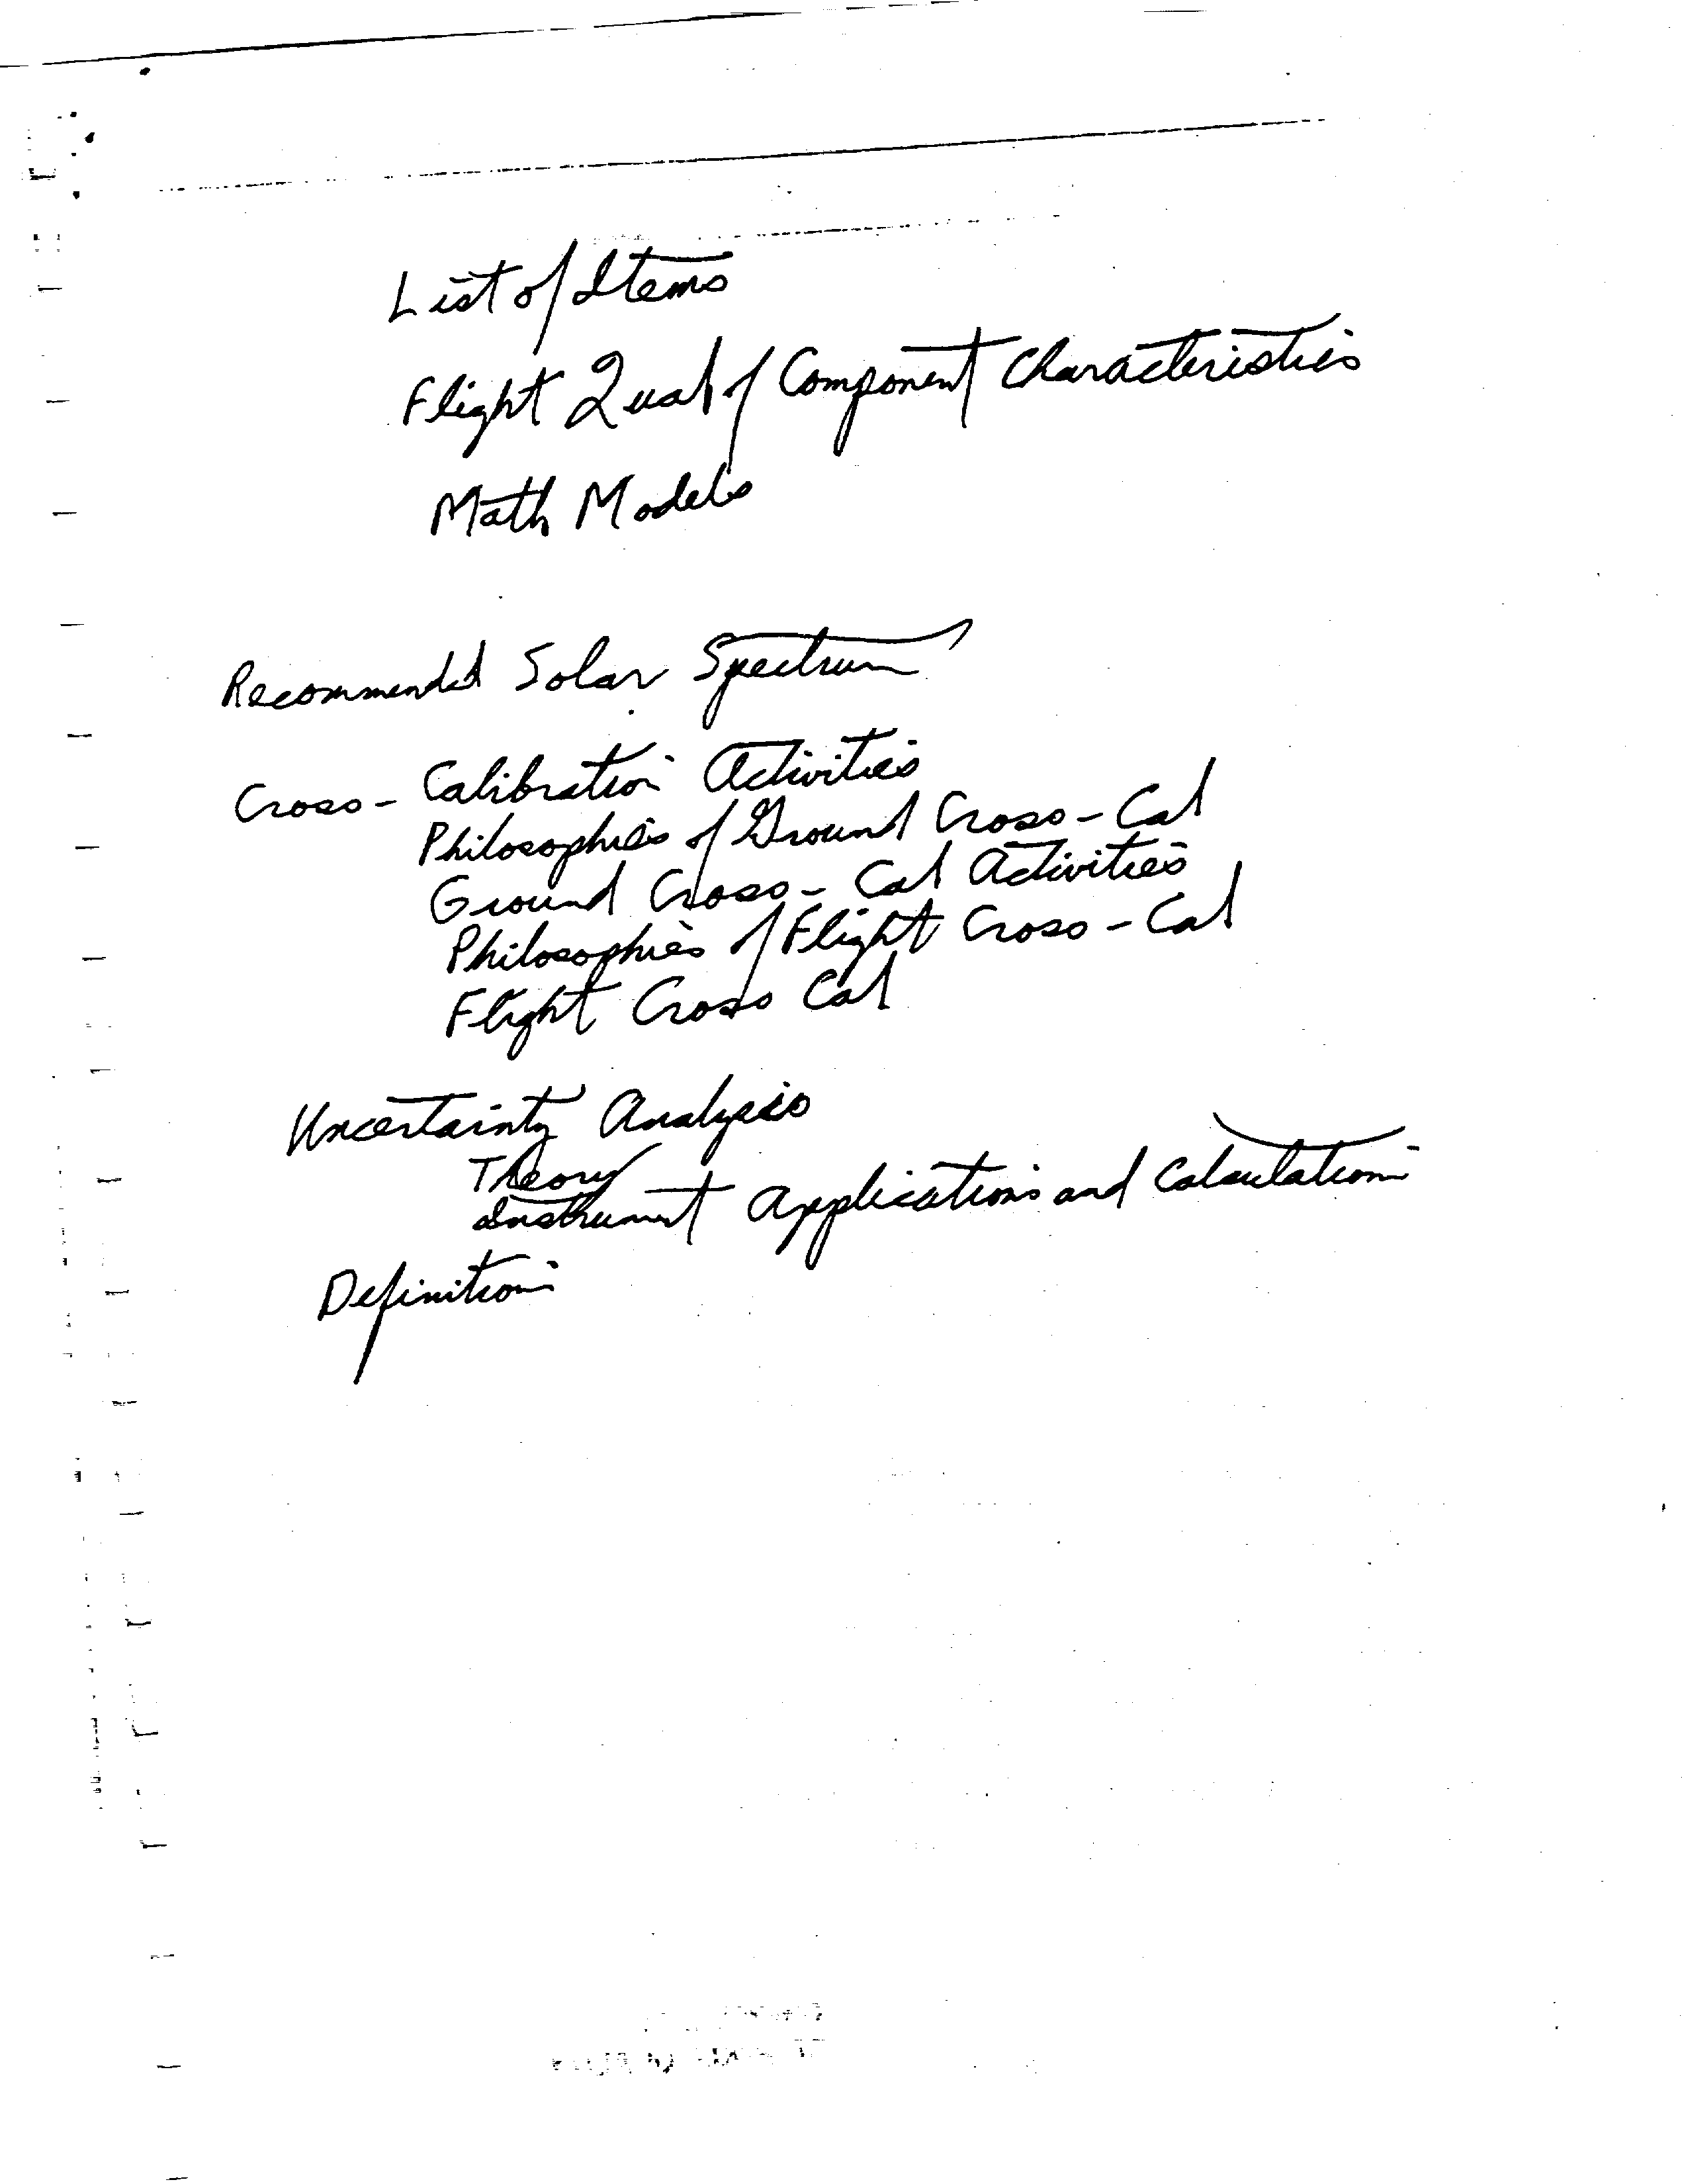 List of Items
Flight Qual of Component Characteristics
Math Models
Recommended Solar Spectrum
Cross-Calibration Activities
Philosophies of Ground Cross-Cal
Ground Cross-Cal Activities
Philosophies of Flight Cross-Cal
Flight Cross Cal
Uncertainty Analysis
Theory
Instrument Applications and Calculations
Definitions